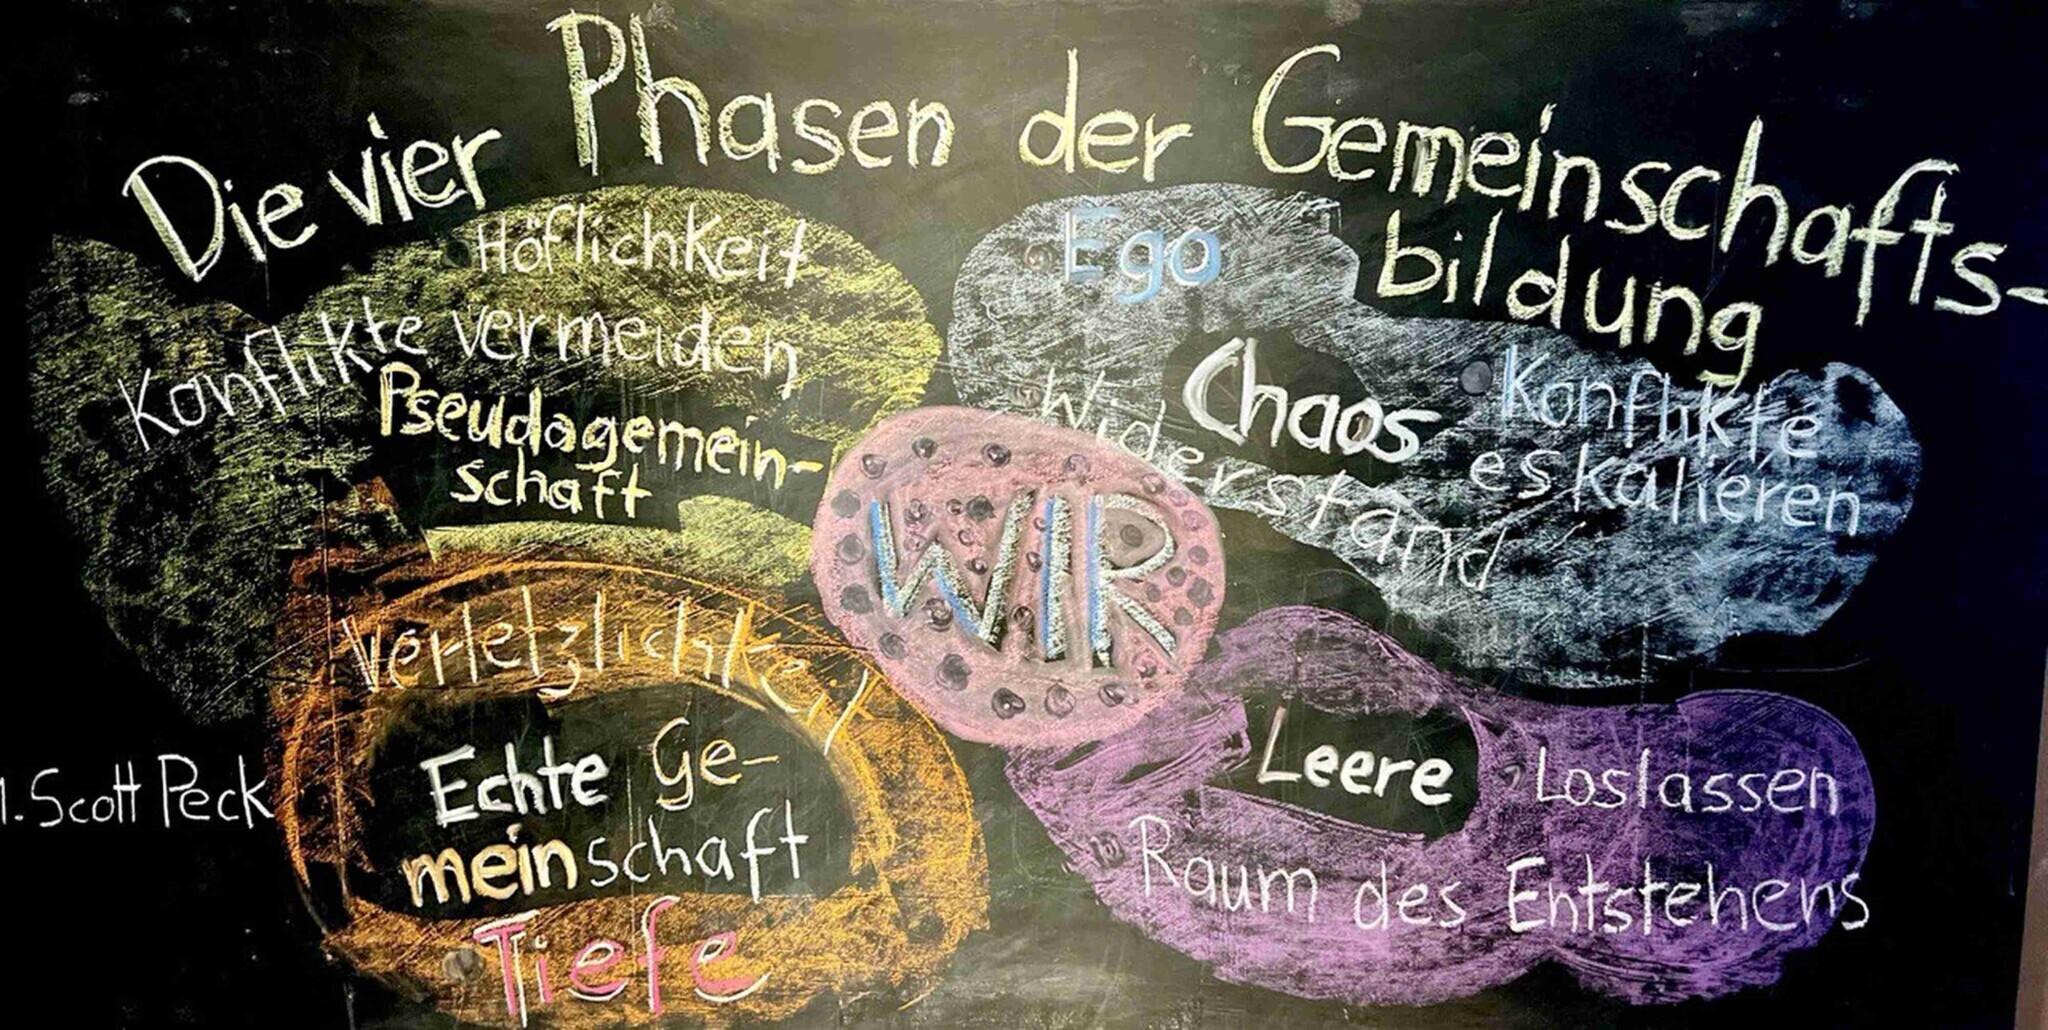 Die vier Phasen der Gemeinschafts-
bildung
Höflichkeit
Konflikte vermeiden
Pseudogemein-
schaft
Ego
Chaos
Widerstand
Konflikte
eskalieren
WIR
Verletzlichkeit
Echte Ge-
meinschaft
Tiefe
Leere
Loslassen
Raum des Entstehens
. Scott Peck